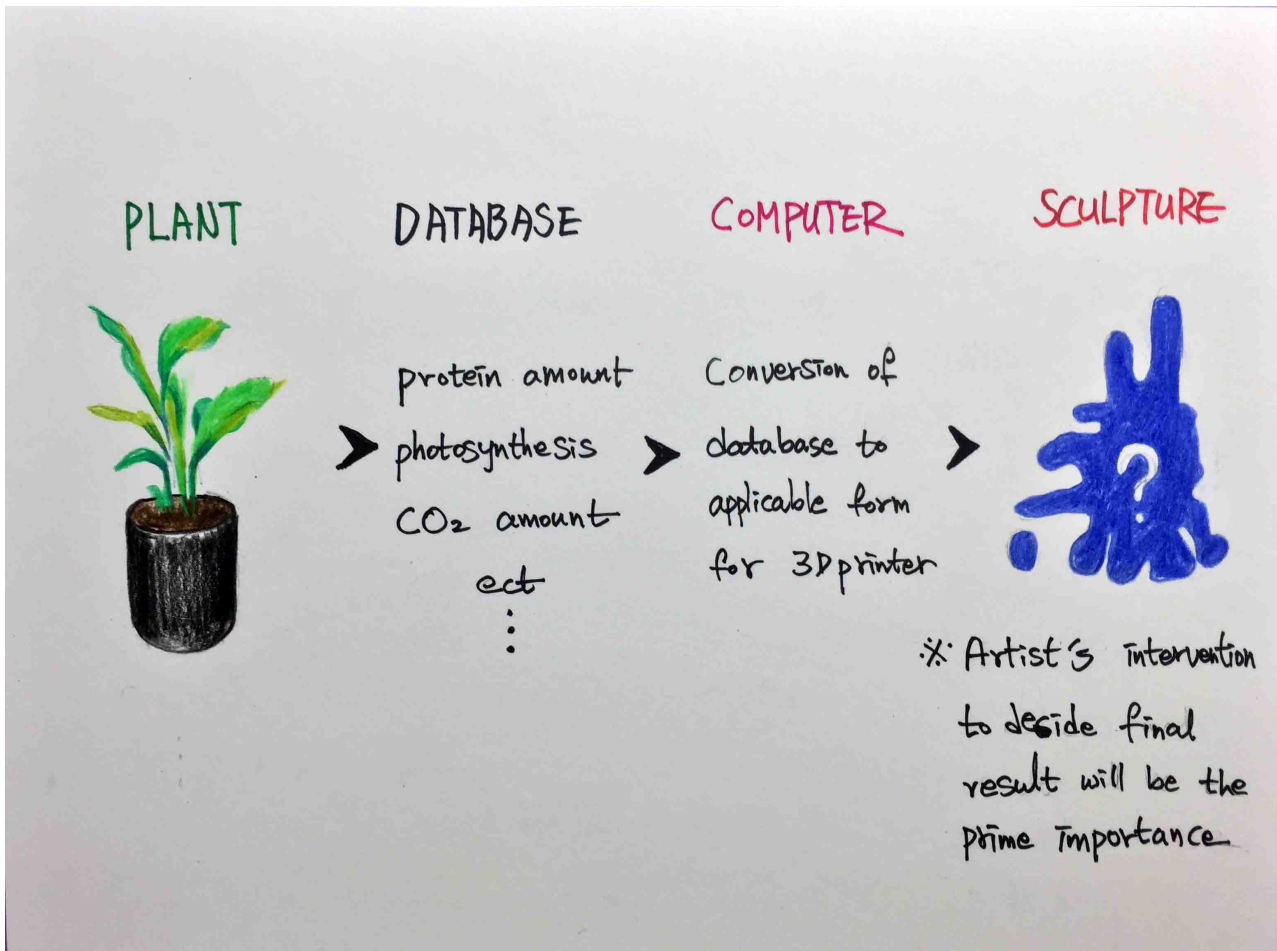 PLANT
DATABASE
COMPUTER
SCULPTURE
protein amount
photosynthesis
CO₂ amount
ect
⋮
Conversion of
database to
applicable form
for 3D printer
?
※ Artist's intervention
to deside final
result will be the
prime importance